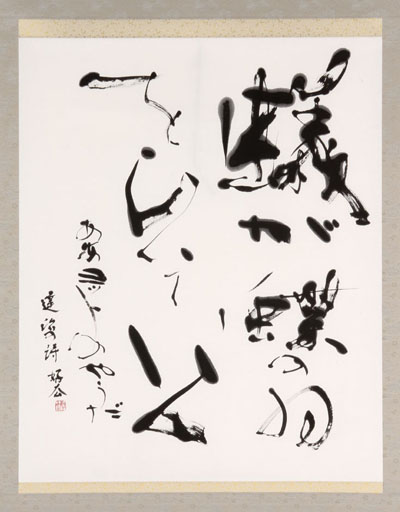 蟻が蝶の羽
をひいて行く
ああヨットのやうだ
達治詩